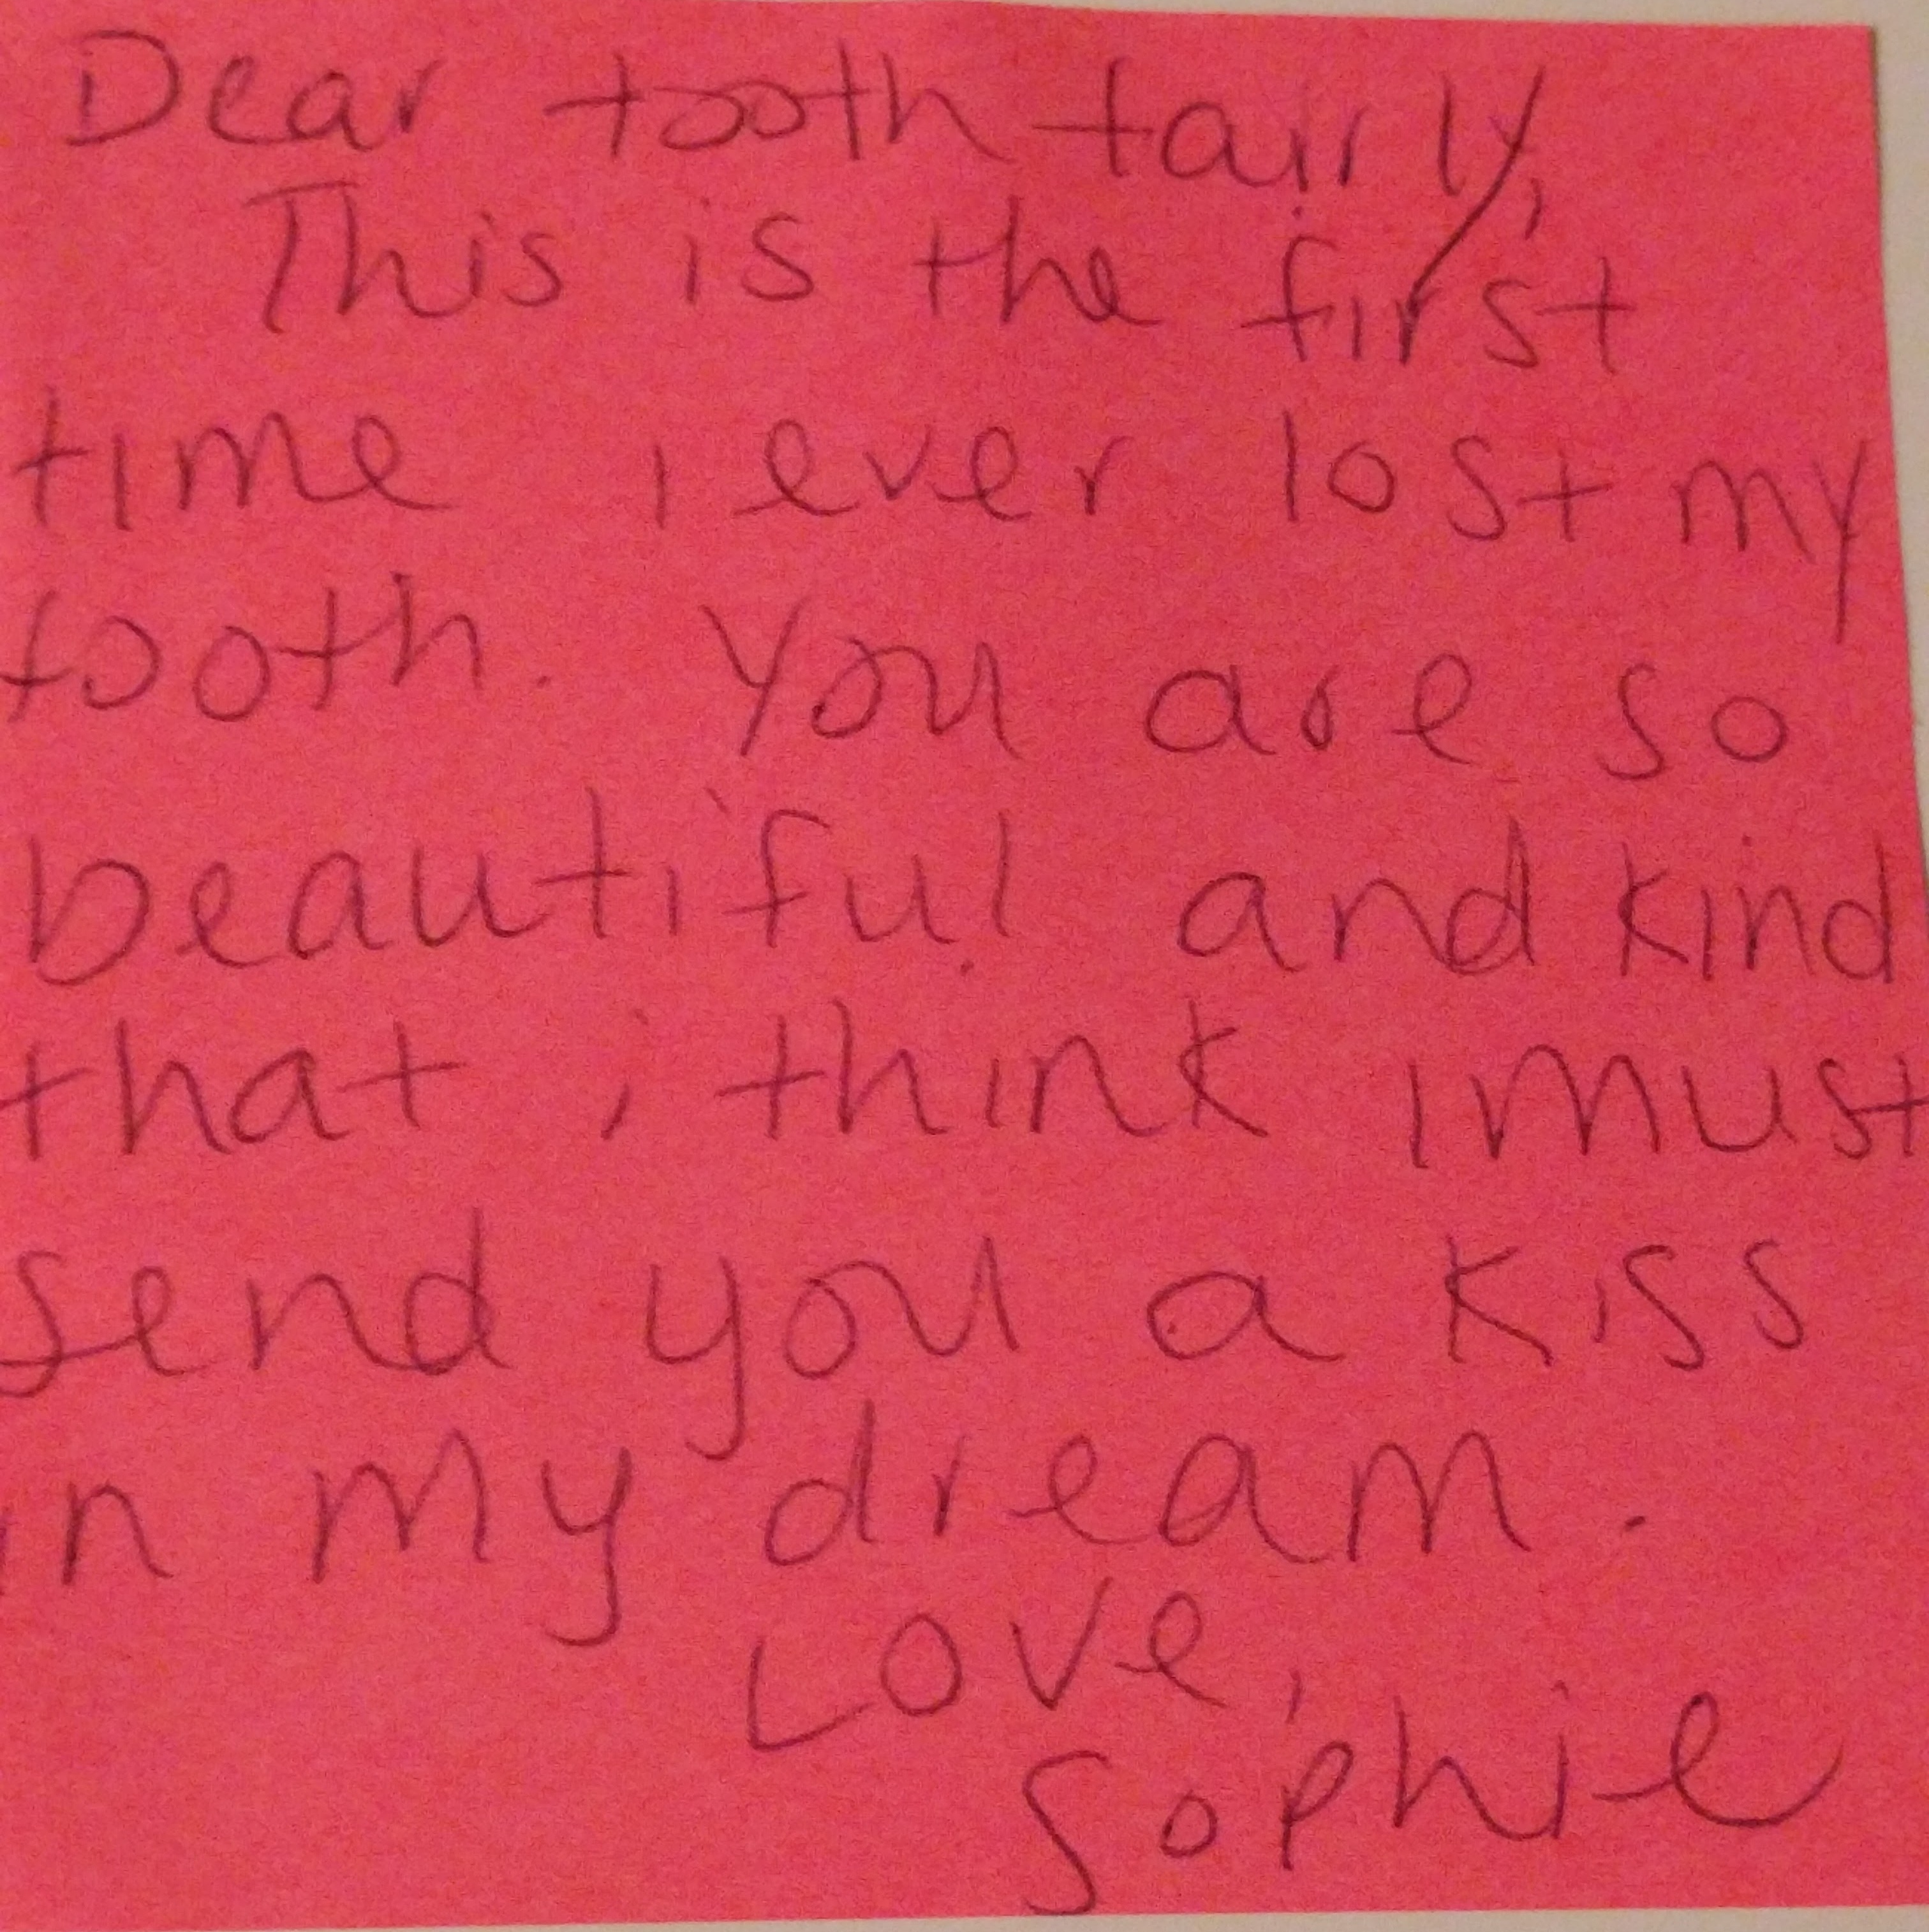 Dear tooth fairly,
This is the first
time i ever lost my
tooth. You are so
beautiful and kind
that i think i must
send you a kiss
in my dream.
Love,
Sophie